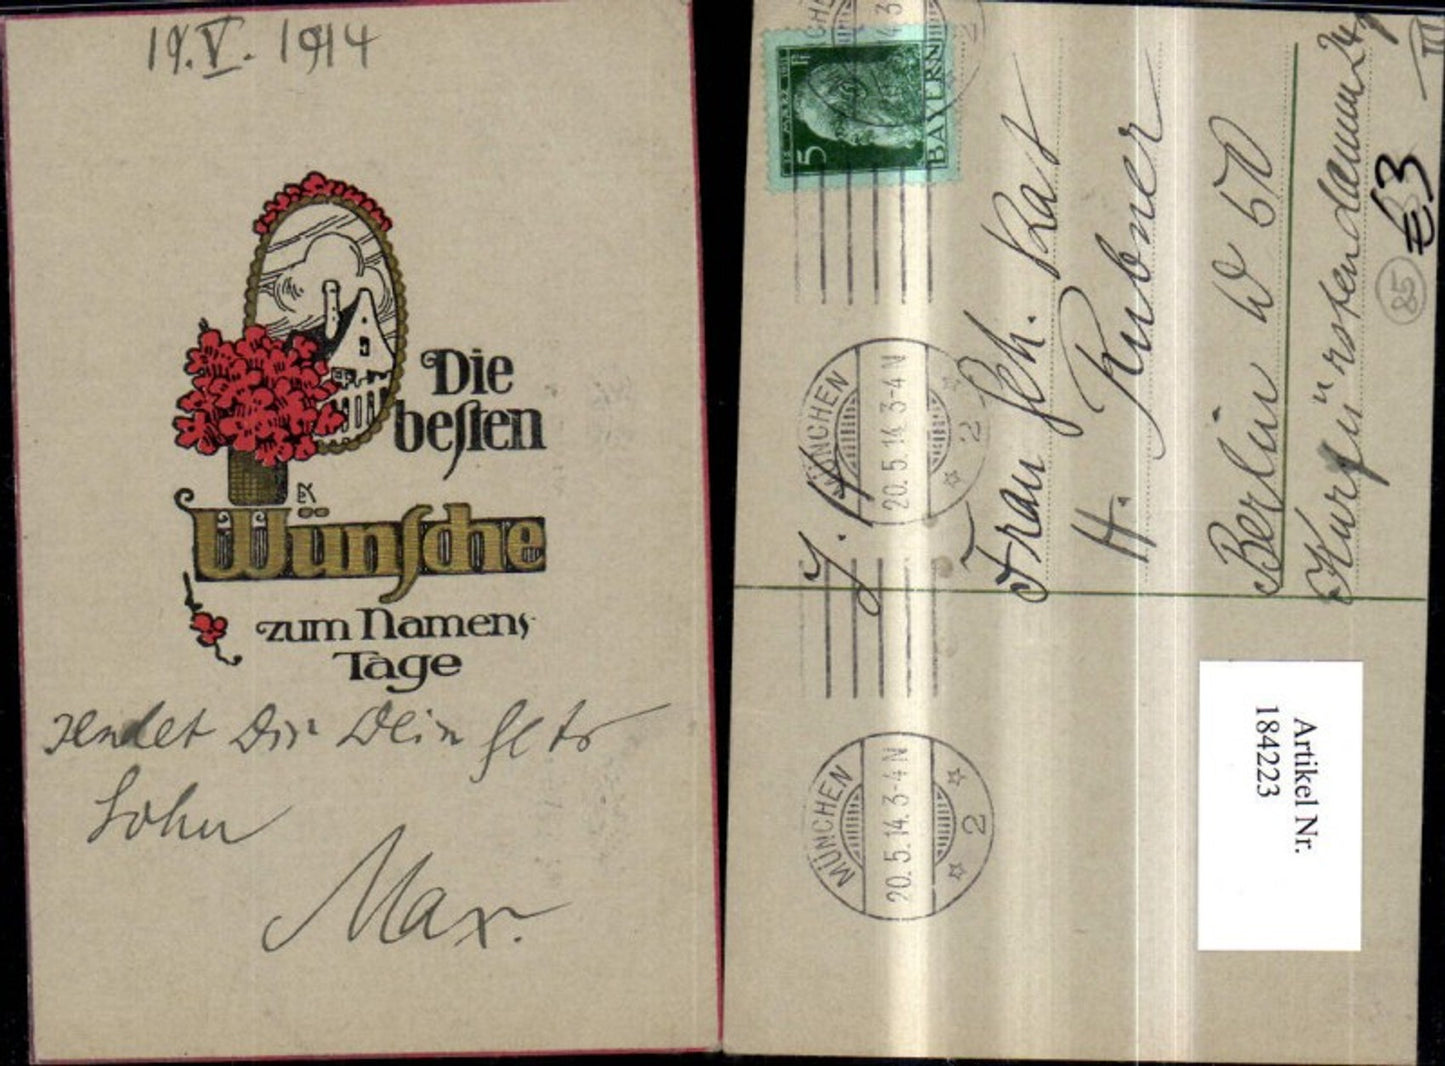 19.V. 1914
Die
besten
Wünsche
zum Namens
Tage
sendet Dir Dein
Sohn
Max.
5
BAYERN
MÜNCHEN
20.5.14.3-4N
2
MÜNCHEN
20.5.14.3-4N
2
Frau Geh. Rat
H. Rubner
Berlin W 50
Kurfürstendamm 24
III
€3
85
Artikel Nr.
184223